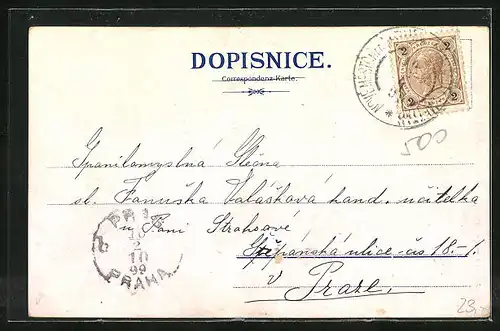 DOPISNICE.
Correspondenz-Karte.
2 2
2 2
500
Spanilomyslná Slečna
sl. Fanuška Valášková kand. učitelka
u Paní Strahsové
Štěpánská ulice - čís 18 - I.
v Praze.
PRAG
2
10
99
PRAHA
23,-